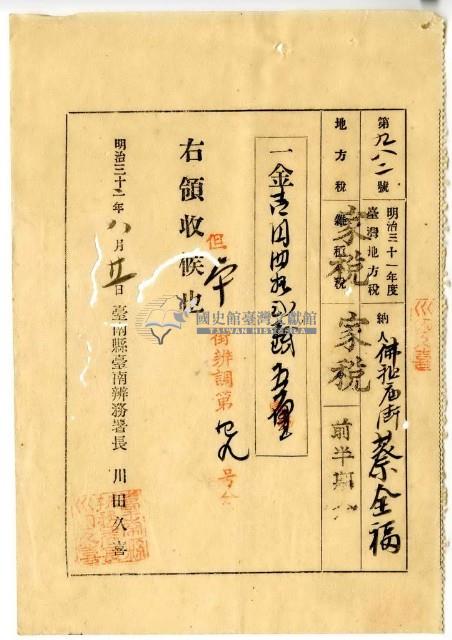 第九八二號
明治三十一年度
臺灣地方税
納人 佛祖庙街 蔡全福
地方税
雜種税
家税
家税
前半期分
一金壱円四拾弐銭五厘
右領收候也
但
街辨調第
号
明治三十一年八月廿日
臺南縣臺南辨務署長 川田久喜
國史館臺灣文獻館
TAIWAN HISTORICA